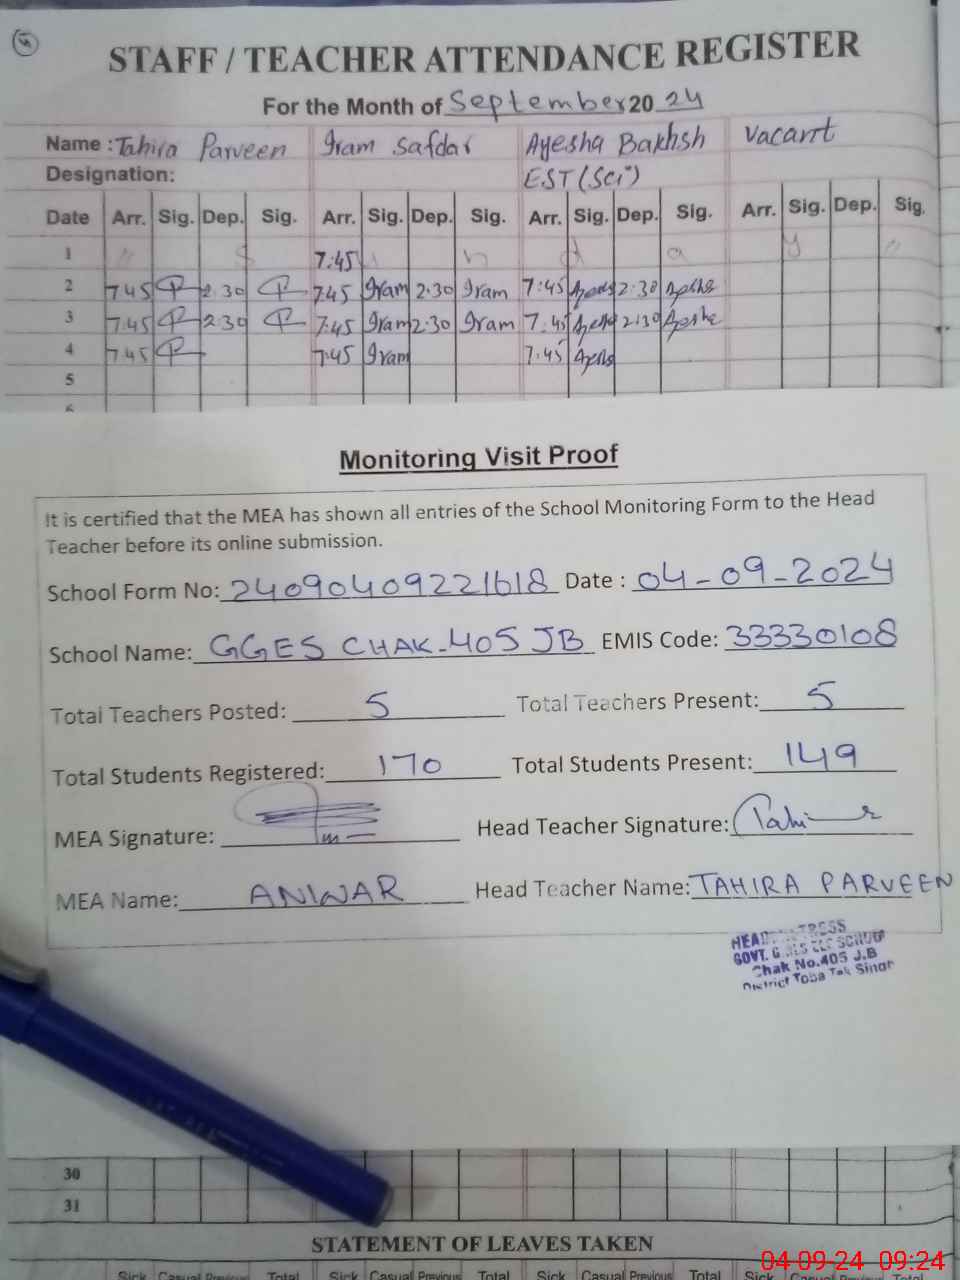 4
STAFF / TEACHER ATTENDANCE REGISTER
For the Month of September 20 24
Name : Tahira Parveen Iram Safdar Ayesha Bakhsh Vacant
Designation: EST (Sci)
Date Arr. Sig. Dep. Sig. Arr. Sig. Dep. Sig. Arr. Sig. Dep. Sig. Arr. Sig. Dep. Sig.
1 " S 7:45 n d a y "
2 7:45 2:30 7:45 Iram 2:30 Iram 7:45 2:30
3 7:45 2:30 7:45 Iram 2:30 Iram 7:45 2:30
4 7:45 7:45 Iram 7:45
5
6
Monitoring Visit Proof
It is certified that the MEA has shown all entries of the School Monitoring Form to the Head
Teacher before its online submission.
School Form No: 24090409221618 Date : 04-09-2024
School Name: GGES CHAK-405 JB EMIS Code: 33330108
Total Teachers Posted: 5 Total Teachers Present: 5
Total Students Registered: 170 Total Students Present: 149
MEA Signature: Head Teacher Signature: Tahira
MEA Name: ANWAR Head Teacher Name: TAHIRA PARVEEN
GOVT. SCHOOL
Chak No.405 J.B
District Toba Tek Singh
30
31
STATEMENT OF LEAVES TAKEN
Sick Casual Previous Total Sick Casual Previous Total Sick Casual Previous Total Sick Casual Previous Total
04-09-24 09:24